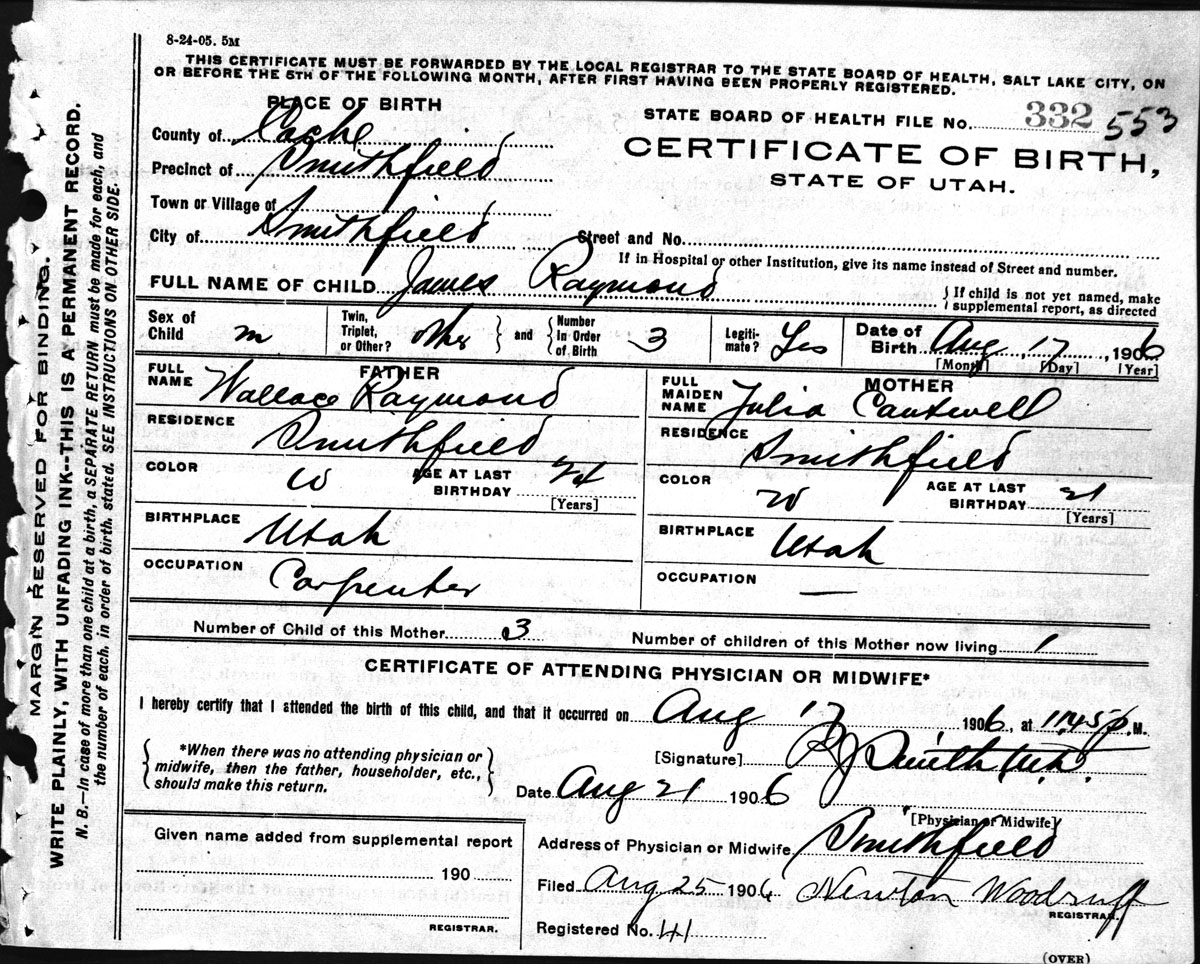 8-24-05. 5M
THIS CERTIFICATE MUST BE FORWARDED BY THE LOCAL REGISTRAR TO THE STATE BOARD OF HEALTH, SALT LAKE CITY, ON
OR BEFORE THE 5TH OF THE FOLLOWING MONTH, AFTER FIRST HAVING BEEN PROPERLY REGISTERED.
PLACE OF BIRTH
County of Cache
Precinct of Smithfield
Town or Village of
City of Smithfield
STATE BOARD OF HEALTH FILE No. 332 553
CERTIFICATE OF BIRTH,
STATE OF UTAH.
Street and No.
If in Hospital or other Institution, give its name instead of Street and number.
FULL NAME OF CHILD James Raymond
If child is not yet named, make
supplemental report, as directed
Sex of Child m
Twin, Triplet, or Other? other and Number In Order of Birth 3
Legitimate? Yes
Date of Birth Aug 17, 1906
[Month] [Day] [Year]
FATHER
FULL NAME Wallace Raymond
RESIDENCE Smithfield
COLOR W AGE AT LAST BIRTHDAY 24
[Years]
BIRTHPLACE Utah
OCCUPATION Carpenter
MOTHER
FULL MAIDEN NAME Julia Cantwell
RESIDENCE Smithfield
COLOR W AGE AT LAST BIRTHDAY 21
[Years]
BIRTHPLACE Utah
OCCUPATION —
Number of Child of this Mother 3
Number of children of this Mother now living 1
CERTIFICATE OF ATTENDING PHYSICIAN OR MIDWIFE*
I hereby certify that I attended the birth of this child, and that it occurred on Aug 17, 1906, at 11.45 p M.
*When there was no attending physician or
midwife, then the father, householder, etc.,
should make this return.
[Signature] Smith
Date Aug 21 1906
[Physician or Midwife]
Given name added from supplemental report
190
REGISTRAR.
Address of Physician or Midwife Smithfield
Filed Aug 25 1906 Newton Woodruff
REGISTRAR.
Registered No. 41
(OVER)
MARGIN RESERVED FOR BINDING.
WRITE PLAINLY, WITH UNFADING INK--THIS IS A PERMANENT RECORD.
N. B.—In case of more than one child at a birth, a SEPARATE RETURN must be made for each, and
the number of each, in order of birth, stated. SEE INSTRUCTIONS ON OTHER SIDE.